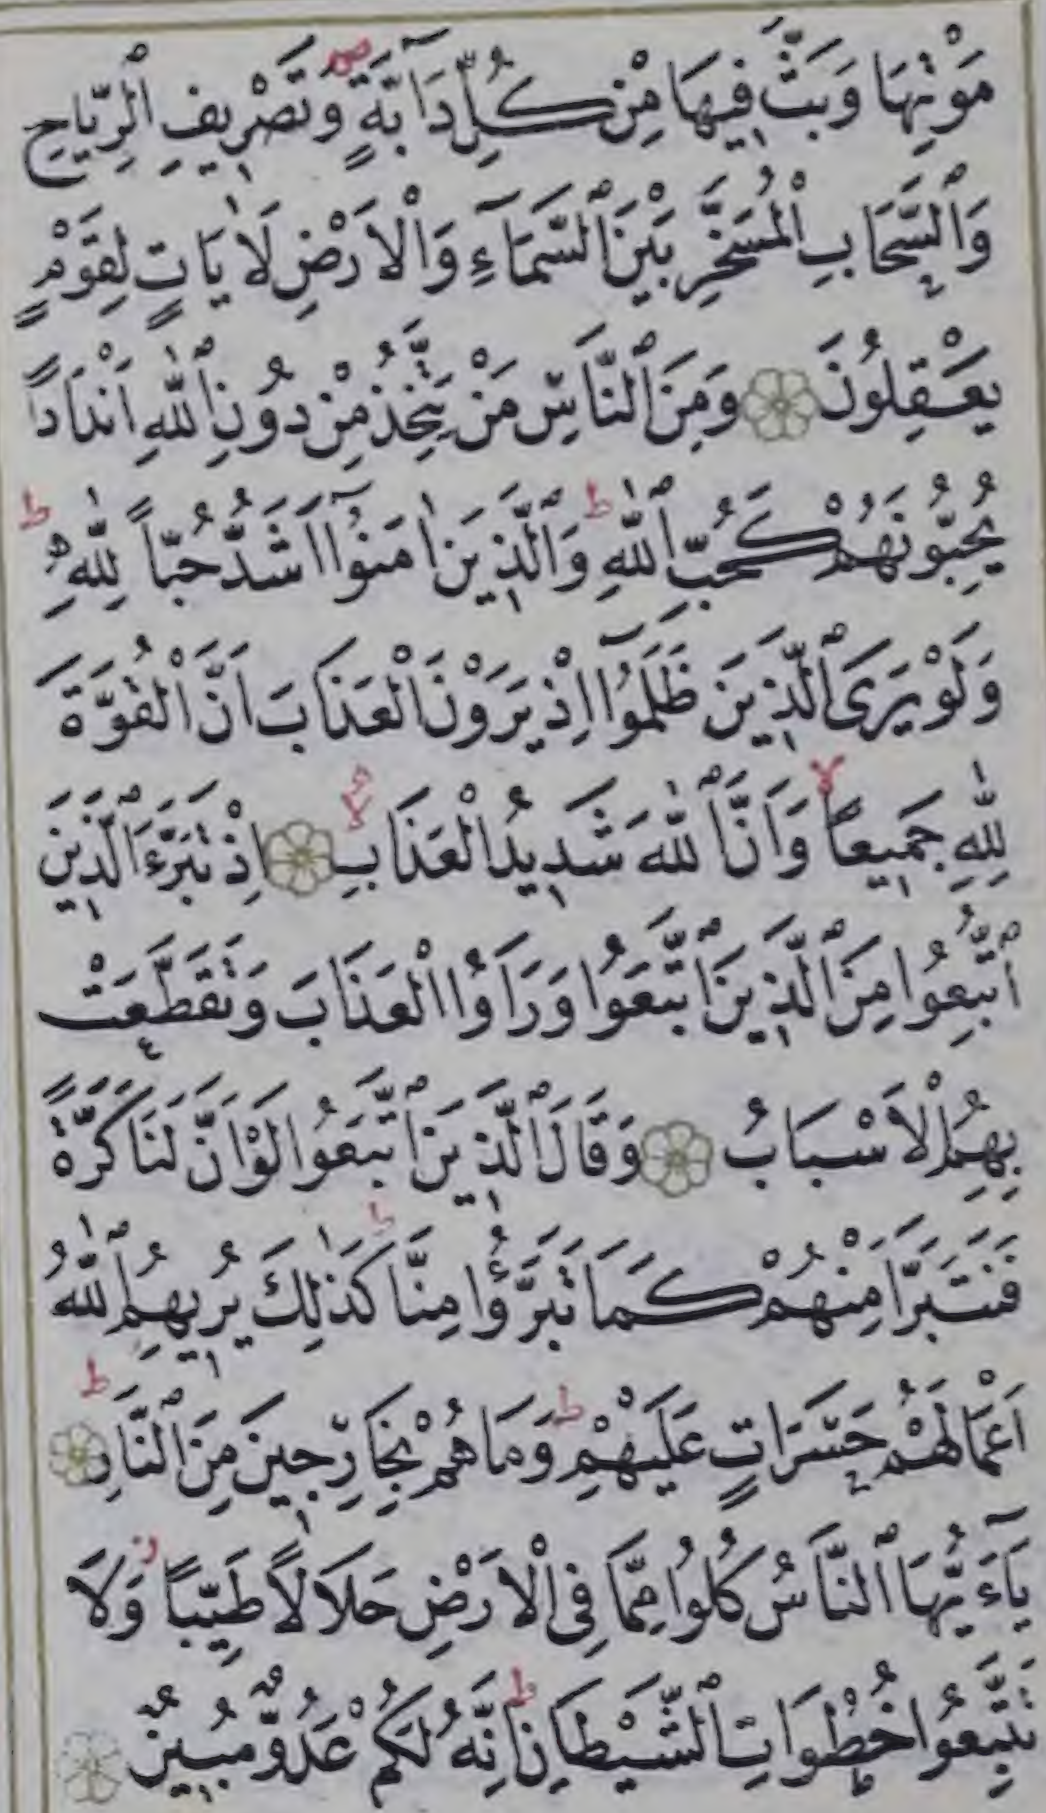 مَوْتِهَا وَبَثَّ فِيهَا مِنْ كُلِّ دَٓابَّةٍ ص وَتَصْرِيفِ الْرِّيَاحِ
وَٱلسَّحَابِ الْمُسَخَّرِ بَيْنَ ٱلسَّمَٓاءِ وَالْاَرْضِ لَاٰيَاتٍ لِقَوْمٍ
يَعْقِلُونَ وَمِنَ ٱلنَّاسِ مَنْ يَتَّخِذُ مِنْ دُونِ ٱللّٰهِ اَنْدَاداً
يُحِبُّونَهُمْ كَحُبِّ ٱللّٰهِ ط وَٱلَّذِينَ اٰمَنُوٓا اَشَدُّ حُبّاً لِلّٰهِ ط
وَلَوْ يَرَى ٱلَّذِينَ ظَلَمُوٓا اِذْ يَرَوْنَ الْعَذَابَ اَنَّ الْقُوَّةَ
لِلّٰهِ جَمِيعاً لا وَاَنَّ ٱللّٰهَ شَدِيدُ الْعَذَابِ اِذْ تَبَرَّءَ ٱلَّذِينَ
ٱتُّبِعُوا مِنَ ٱلَّذِينَ ٱتَّبَعُوا وَرَاَوُا الْعَذَابَ وَتَقَطَّعَتْ
بِهِمُ الْاَسْبَابُ وَقَالَ ٱلَّذِينَ ٱتَّبَعُوا لَوْ اَنَّ لَنَا كَرَّةً
فَنَتَبَرَّاَ مِنْهُمْ كَمَا تَبَرَّؤُا مِنَّا ط كَذٰلِكَ يُرِيهِمُ ٱللّٰهُ
اَعْمَالَهُمْ حَسَرَاتٍ عَلَيْهِمْ ط وَمَا هُمْ بِخَارِجِينَ مِنَ ٱلنَّارِ ط
يَٓاءَيُّهَا ٱلنَّاسُ كُلُوا مِمَّا فِى الْاَرْضِ حَلَالاً طَيِّباً ز وَلَا
تَتَّبِعُوا خُطُوَاتِ ٱلشَّيْطَانِ ط اِنَّهُ لَكُمْ عَدُوٌّ مُبِينٌ